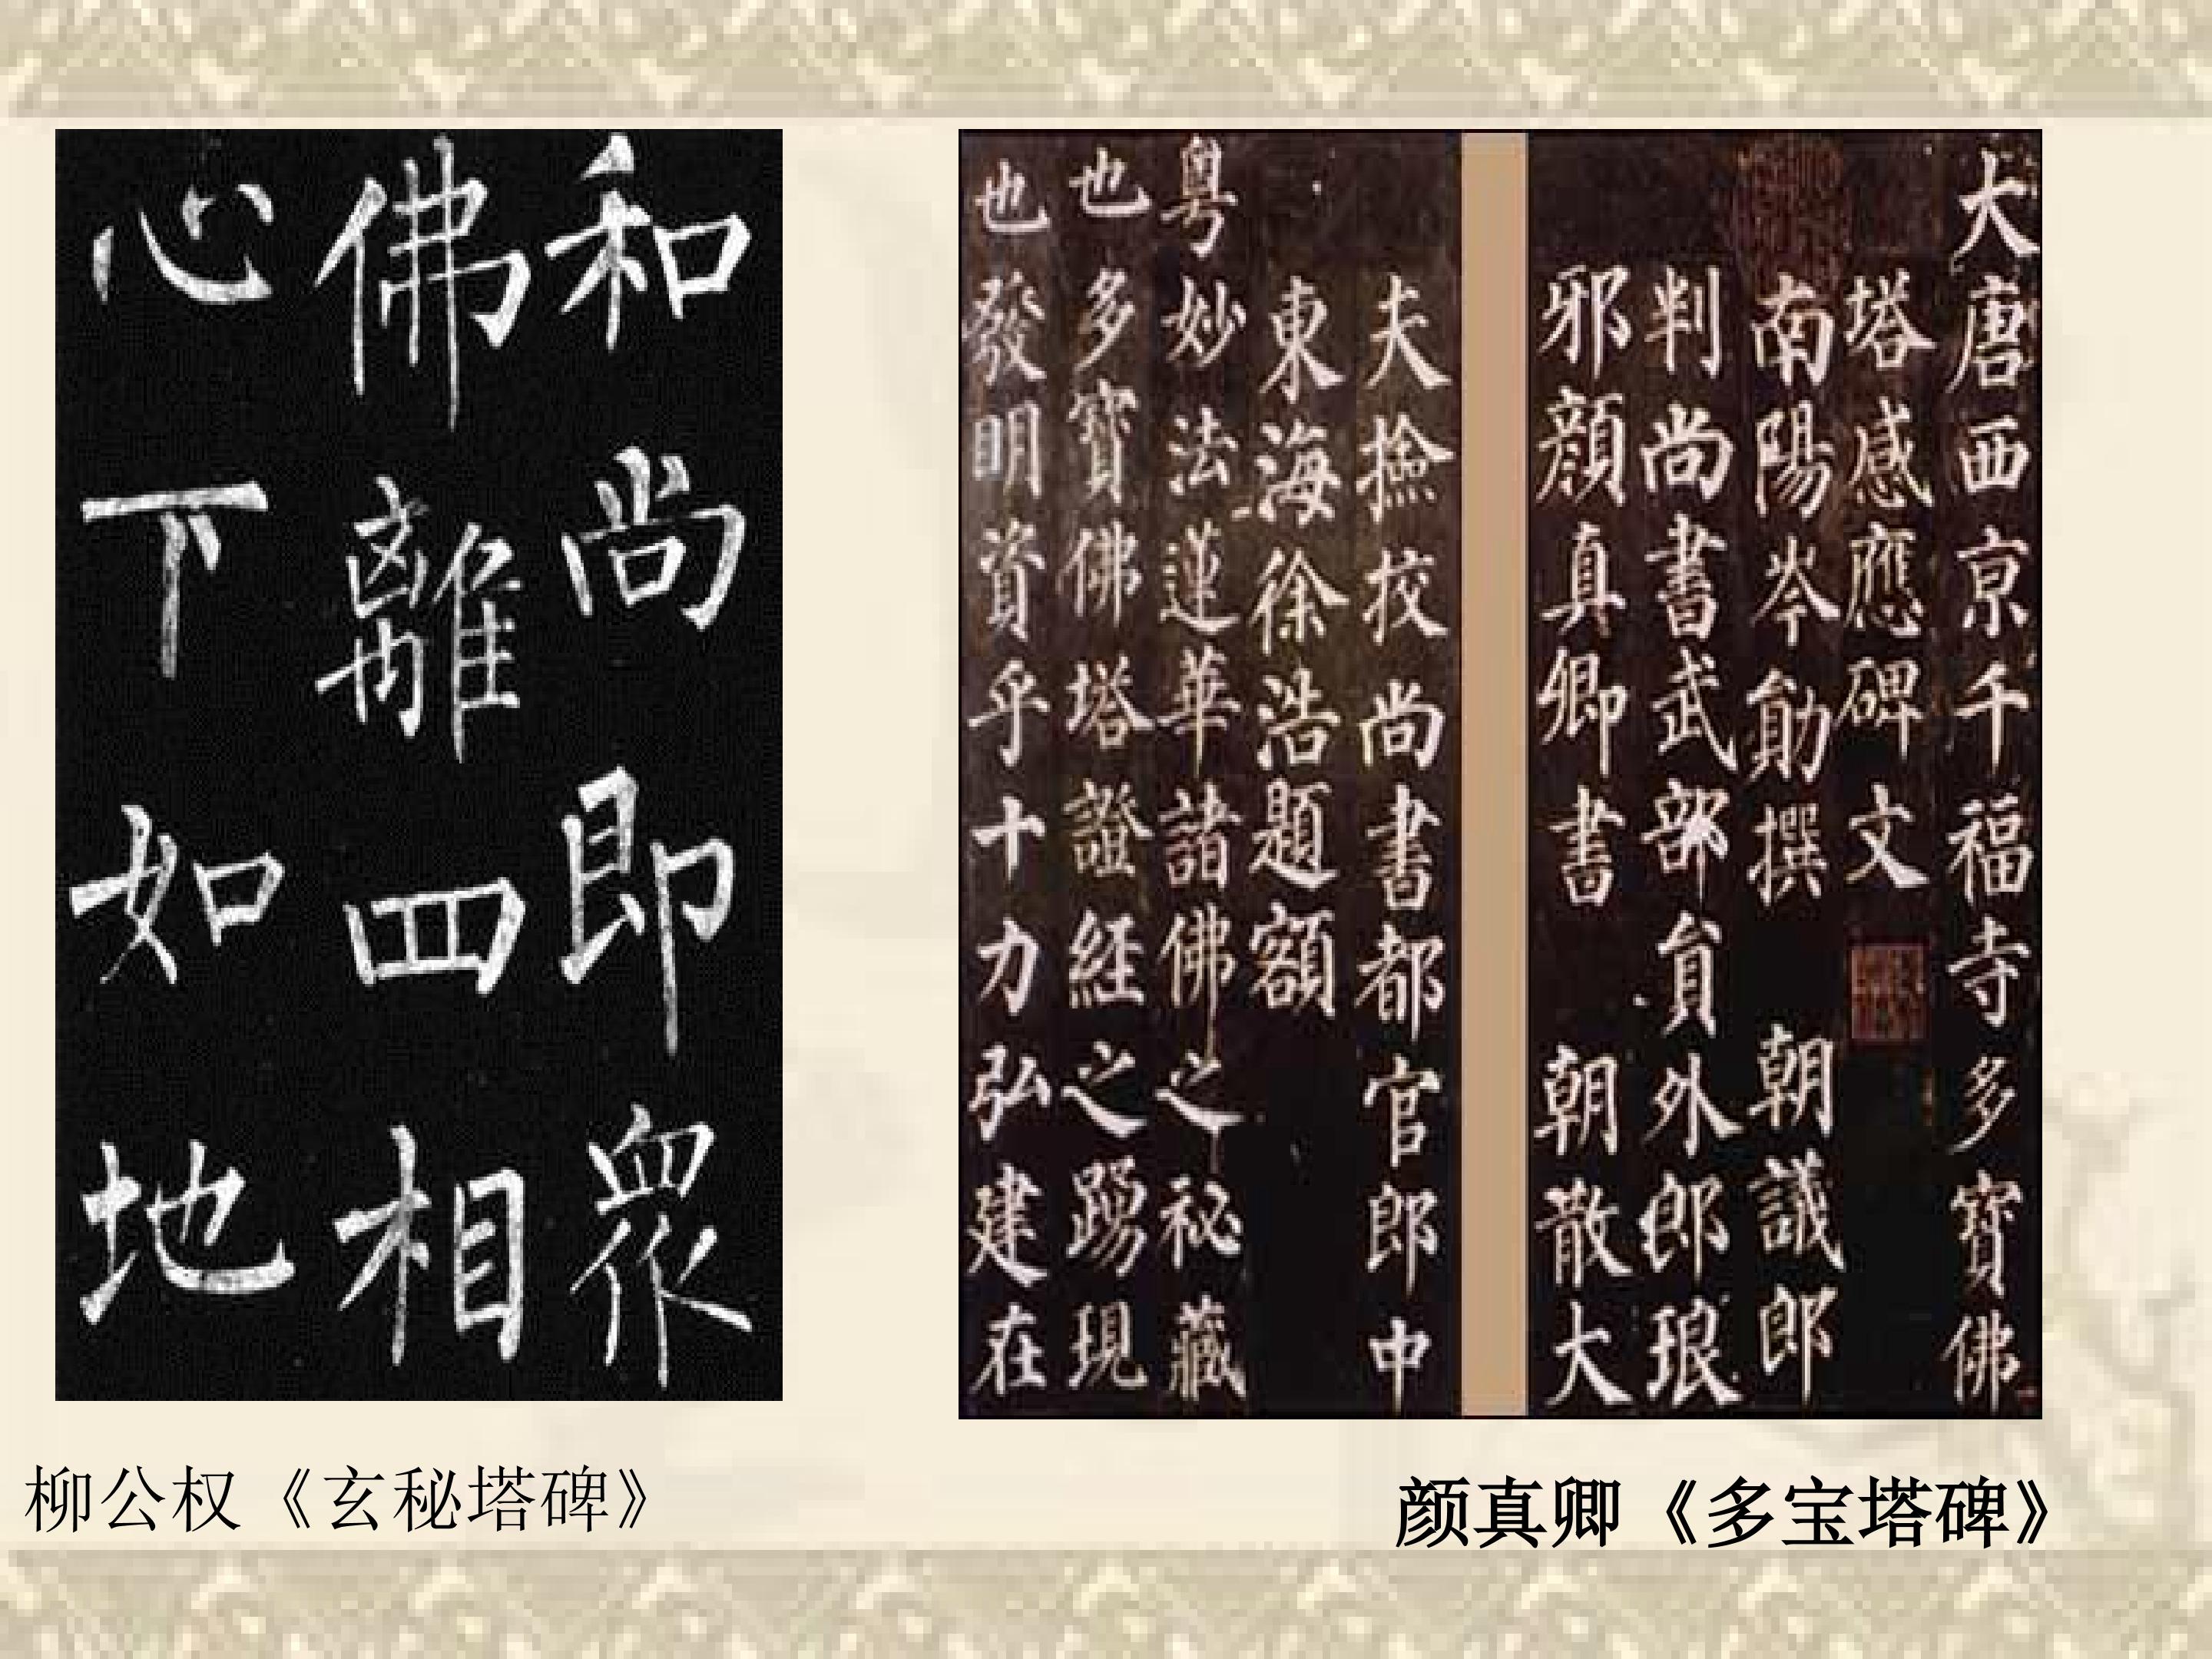 和尚即眾
佛離四相
心下如地
柳公权《玄秘塔碑》
大唐西京千福寺多寶佛
塔感應碑文
南陽岑勛撰 朝議郎
判尚書武部員外郎琅
邪顏真卿書 朝散大
夫撿挍尚書都官郎中
東海徐浩題額
粵妙法蓮華諸佛之秘藏
也多寶佛塔證經之踴現
也發明資乎十力弘建在
颜真卿《多宝塔碑》